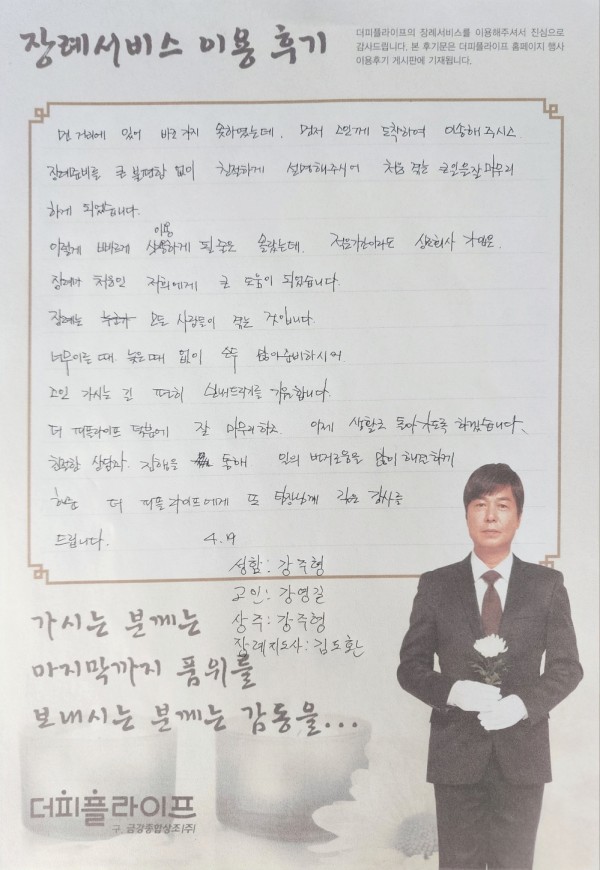 장례서비스 이용 후기
더피플라이프의 장례서비스를 이용해주셔서 진심으로
감사드립니다. 본 후기문은 더피플라이프 홈페이지 행사
이용후기 게시판에 기재됩니다.
먼 거리에 있어 바로 가지 못하였는데, 먼저 고인께 도착하여 이송해 주시고
장례준비를 큰 불편함 없이 친절하게 설명해주시어 처음 겪는 큰일을 잘 마무리
하게 되었습니다.
이렇게 빠르게 이용하게 될 줄은 몰랐는데, 적은기간이라도 상조회사 가입은
장례가 처음인 저희에게 큰 도움이 되었습니다.
장례는 모든 사람들이 겪는 것입니다.
너무이른때 늦은때 없이 모두 준비하시어
고인 가시는 길 편히 보내드리기를 기원합니다.
더 피플라이프 덕분에 잘 마무리 하고 이제 생활로 돌아가도록 하겠습니다.
친절한 상담과 진행을 통해 번거로움을 많이 해결하게
해준 더 피플라이프에게 또 팀장님께 깊은 감사를
드립니다. 4.19
성함: 강주형
고인: 강영길
상주: 강주형
장례지도사: 김도환
가시는 분께는
마지막까지 품위를
보내시는 분께는 감동을...
더피플라이프
구. 금강종합상조(주)